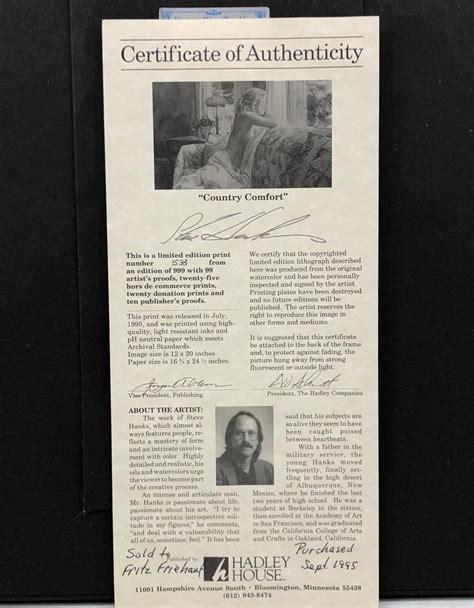 Certificate of Authenticity
"Country Comfort"
This is a limited edition print
number 533 from
an edition of 999 with 99
artist's proofs, twenty-five
hors de commerce prints,
twenty donation prints and
ten publisher's proofs.
This print was released in July,
1995, and was printed using high-
quality, light resistant inks and
pH neutral paper which meets
Archival Standards.
Image size is 12 x 20 inches.
Paper size is 16 ¾ x 24 ½ inches.
We certify that the copyrighted
limited edition lithograph described
here was produced from the original
watercolor and has been personally
inspected and signed by the artist.
Printing plates have been destroyed
and no future editions will be
published. The artist reserves the
right to reproduce this image in
other forms and mediums.
It is suggested that this certificate
be attached to the back of the frame
and, to protect against fading, the
picture hung away from strong
fluorescent or outside light.
Vice President, Publishing
President, The Hadley Companies
ABOUT THE ARTIST:
The work of Steve
Hanks, which almost al-
ways features people, re-
flects a mastery of form
and an intricate involve-
ment with color. Highly
detailed and realistic, his
oils and watercolors urge
the viewer to become part
of the creative process.
An intense and articulate man,
Mr. Hanks is passionate about life,
passionate about his art. "I try to
capture a certain introspective solitude
in my figures," he comments,
"and deal with a vulnerability that
all of us, sometime, feel." It has been
said that his subjects are
so alive they seem to have
been caught poised
between heartbeats.
With a father in the
military service, the
young Hanks moved
frequently, finally sett-
ling in the high desert
of Albuquerque, New
Mexico, where he finished the last
two years of high school. He was a
student at Berkeley in the sixties,
then enrolled at the Academy of Art
in San Francisco, and was graduated
from the California College of Arts
and Crafts in Oakland, California.
Sold to
Fritz Friehauf
Published by
HADLEY
HOUSE
Purchased
Sept 1995
11001 Hampshire Avenue South • Bloomington, Minnesota 55438
(612) 943-8474